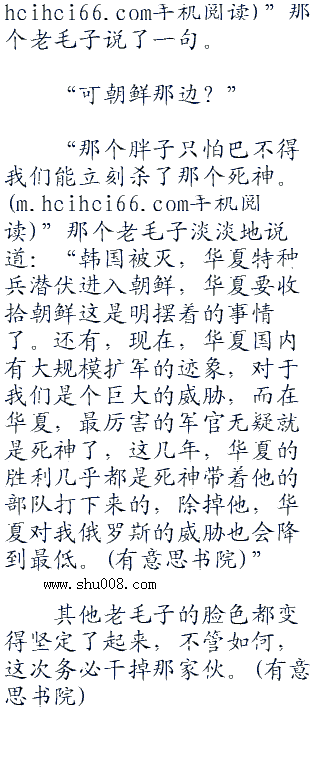 hcihci66.com手机阅读)”那
个老毛子说了一句。
“可朝鲜那边？”
“那个胖子只怕巴不得
我们能立刻杀了那个死神。
(m.hcihci66.com手机阅
读)”那个老毛子淡淡地说
道：“韩国被灭，华夏特种
兵潜伏进入朝鲜，华夏要收
拾朝鲜这是明摆着的事情
了。还有，现在，华夏国内
有大规模扩军的迹象，对于
我们是个巨大的威胁，而在
华夏，最厉害的军官无疑就
是死神了，这几年，华夏的
胜利几乎都是死神带着他的
部队打下来的，除掉他，华
夏对我俄罗斯的威胁也会降
到最低。(有意思书院)”
www.shu008.com
其他老毛子的脸色都变
得坚定了起来，不管如何，
这次务必干掉那家伙。(有意
思书院)